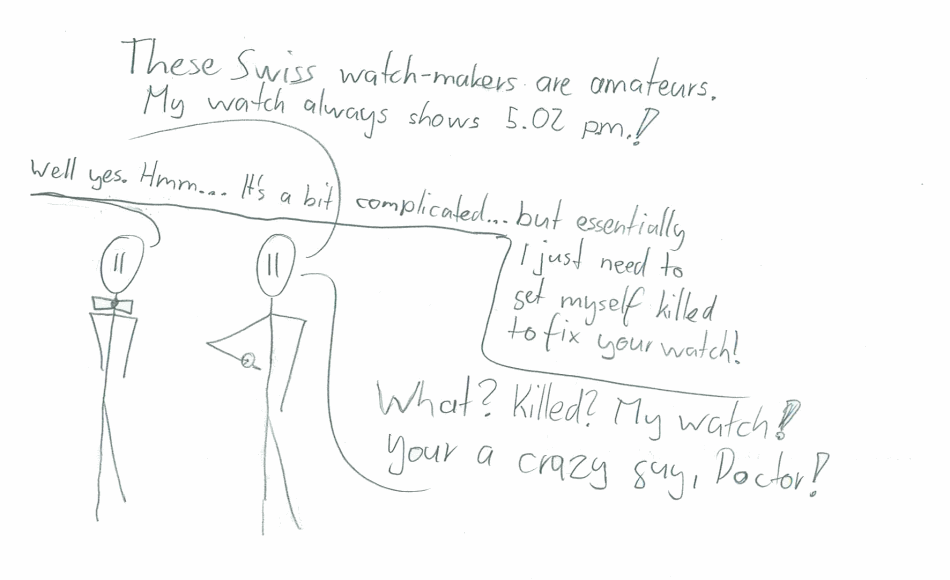 These Swiss watch-makers are amateurs.
My watch always shows 5.02 pm.!
Well yes. Hmm.... It's a bit complicated... but essentially
I just need to
get myself killed
to fix your watch!
What? Killed? My watch!
Your a crazy guy, Doctor!